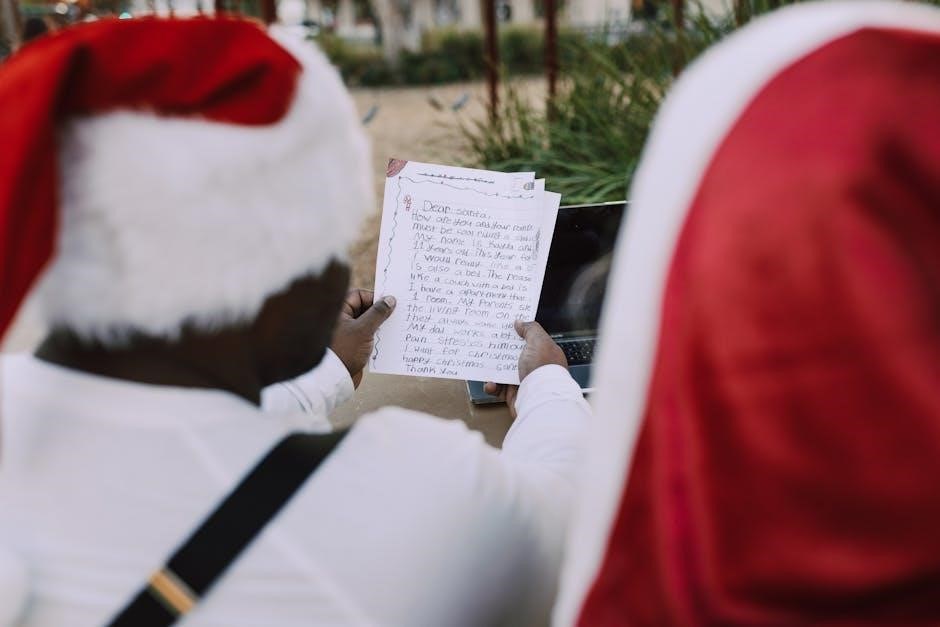 Dear santa,
How are you and your
must be cool riding a
My name is and
11 years old. This year for
I would really like a
is also a bed. The
like a couch with a bed is
I have a apartment that
1 room. My Parents
the living room on the
they always
My dad works a lot
Pain
I want for christmas
happy christmas
Thank you